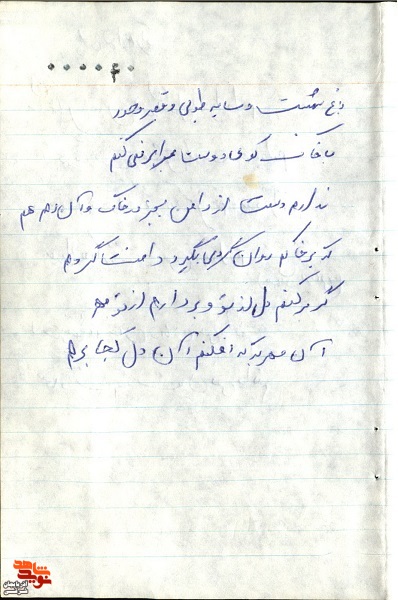 ۰۰۰۰۴۰
باغ بهشت و سایه طوبی و قصر و حور
با خاک کوی دوست برابر نمی کنم
ندارم دستت از دامن بجز در خاک و آن دم هم
که بر خاکم روان گردی بگیرد دامنت گردم
گر بر کنم دل از تو و بردارم از تو مهر
آن مهر بر که افکنم آن دل کجا برم
نوید شاهد